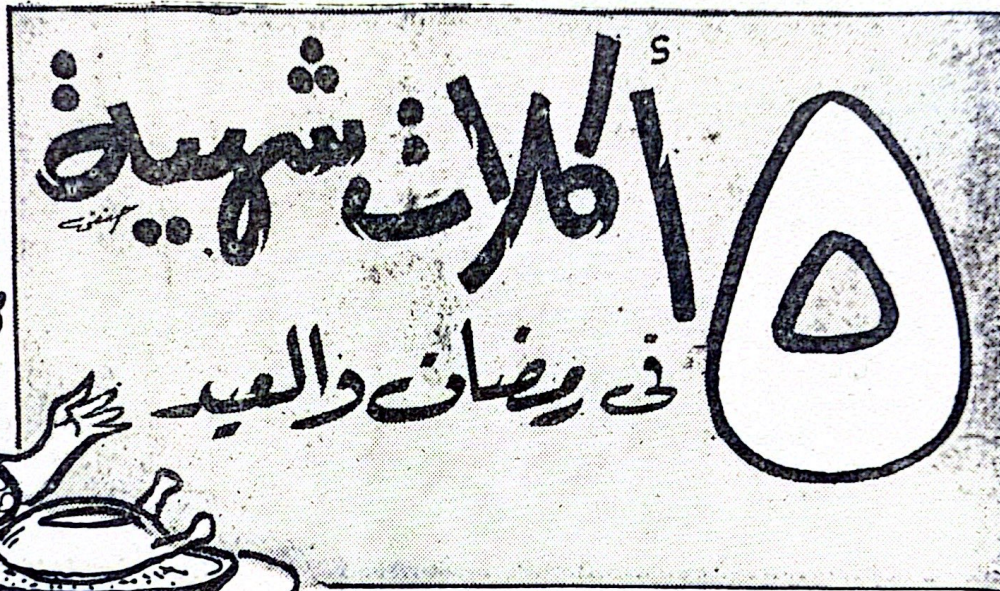 ٥ أكلات شهية
فى رمضان والعيد